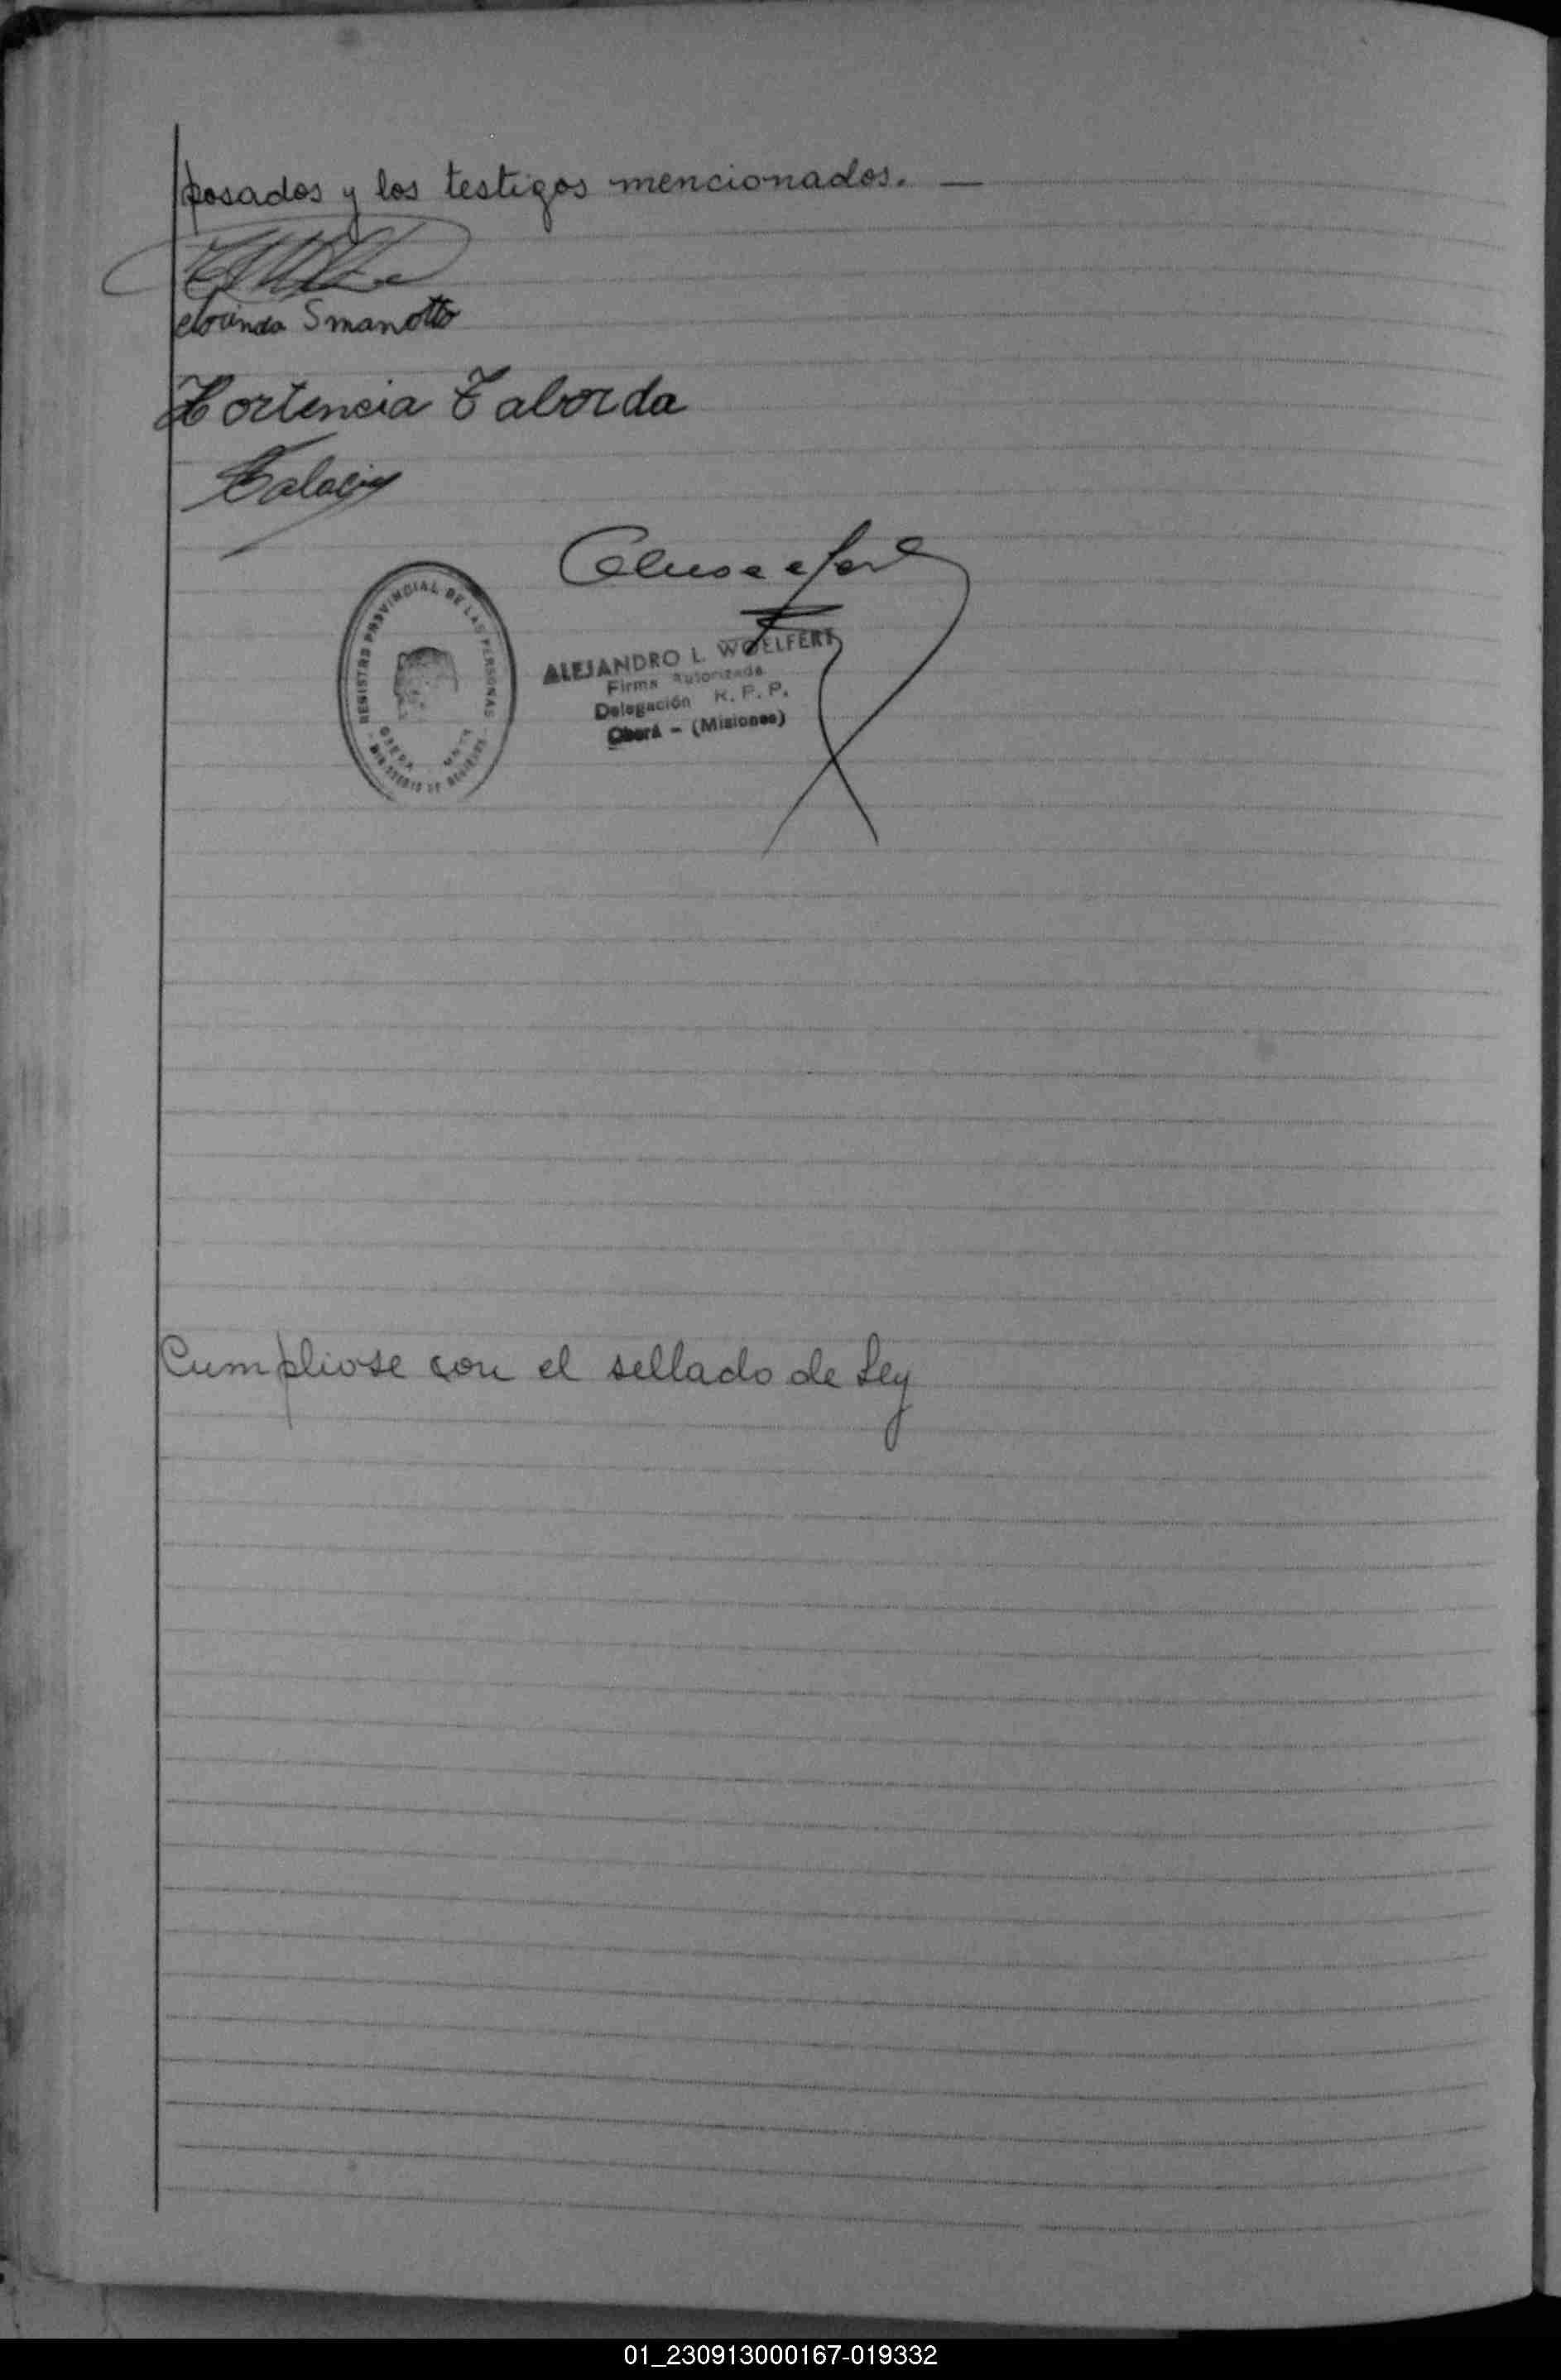 posados y los testigos mencionados. —
Smanotto
Hortencia Taborda
REGISTRO PROVINCIAL DE LAS PERSONAS
ALEJANDRO L. WOELFERT
Firma Autorizada
Delegación R. P. P.
Oberá - (Misiones)
Cumpliose con el sellado de Ley
01_230913000167-019332